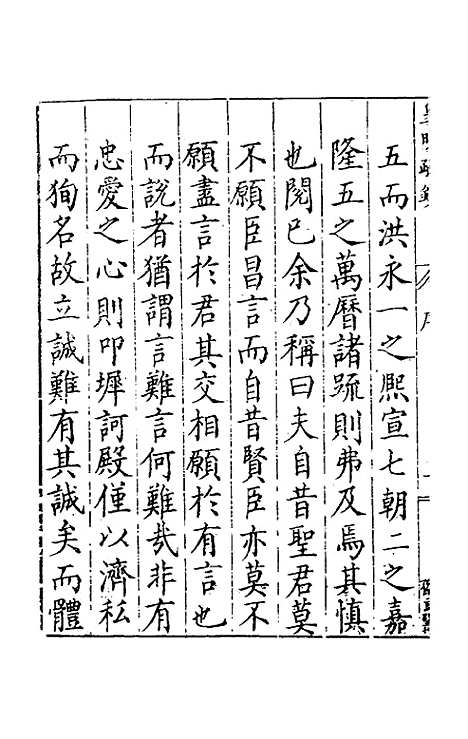 五而洪永一之熙宣七朝二之嘉
隆五之萬曆諸䟽則弗及焉其慎
也閱已余乃稱曰夫自昔聖君莫
不願臣昌言而自昔賢臣亦莫不
願盡言於君其交相願於有言也
而說者猶謂言難言何難哉非有
忠愛之心則叩墀訶殿僅以濟私
而狥名故立誠難有其誠矣而體